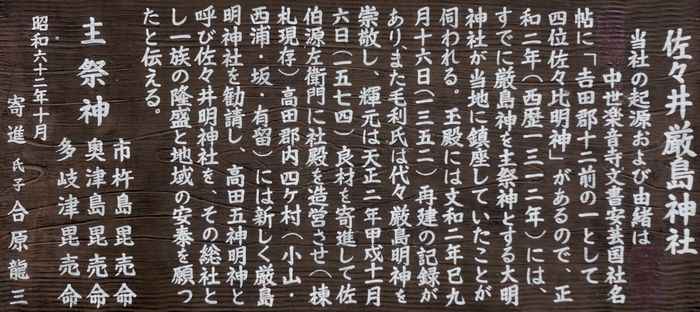 佐々井厳島神社
当社の起源および由緒は
中世楽音寺文書安芸国社名
帖に「吉田郡十二前の一として
四位佐々比明神」があるので、正
和二年（西歴一三一二年）には、
すでに厳島神を主祭神とする大明
神社が当地に鎮座していたことが
伺われる。玉殿には文和二年巳九
月十六日（一三五二）再建の記録が
あり、また毛利氏は代々厳島明神を
崇敬し、輝元は天正二年甲戌十一月
六日（一五七四）良材を寄進して佐
伯源左衛門に社殿を造営させ（棟
札現存）高田郡内四ケ村（小山・
西浦・坂・有留）には新しく厳島
明神社を勧請し、高田五神明神と
呼び佐々井明神社を、その総社と
し一族の隆盛と地域の安泰を願っ
たと伝える。
主祭神
市杵島毘売命
奥津島毘売命
多岐津毘売命
昭和六十二年十月
寄進 氏子 合原龍三